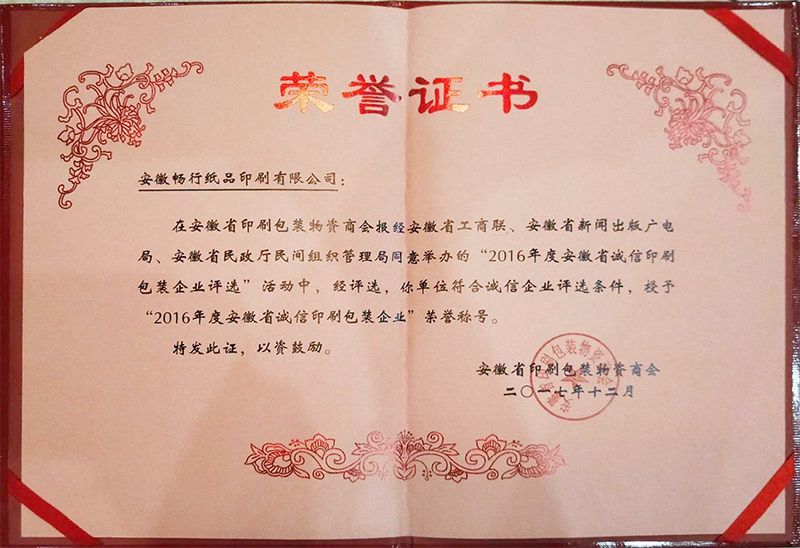 荣誉证书
安徽畅行纸品印刷有限公司：
在安徽省印刷包装物资商会报经安徽省工商联、安徽省新闻出版广电
局、安徽省民政厅民间组织管理局同意举办的“2016年度安徽省诚信印刷
包装企业评选”活动中，经评选，你单位符合诚信企业评选条件，授予
“2016年度安徽省诚信印刷包装企业”荣誉称号。
特发此证，以资鼓励。
安徽省印刷包装物资商会
二〇一七年十二月
安徽省印刷包装物资商会